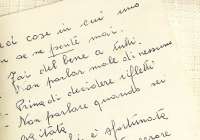 cose in cui uno
non se ne pente mai.
Far del bene a tutti.
Non parlar male di nessuno
Prima di decidere rifletti
Non parlare quando sei
agitata
sfortunata